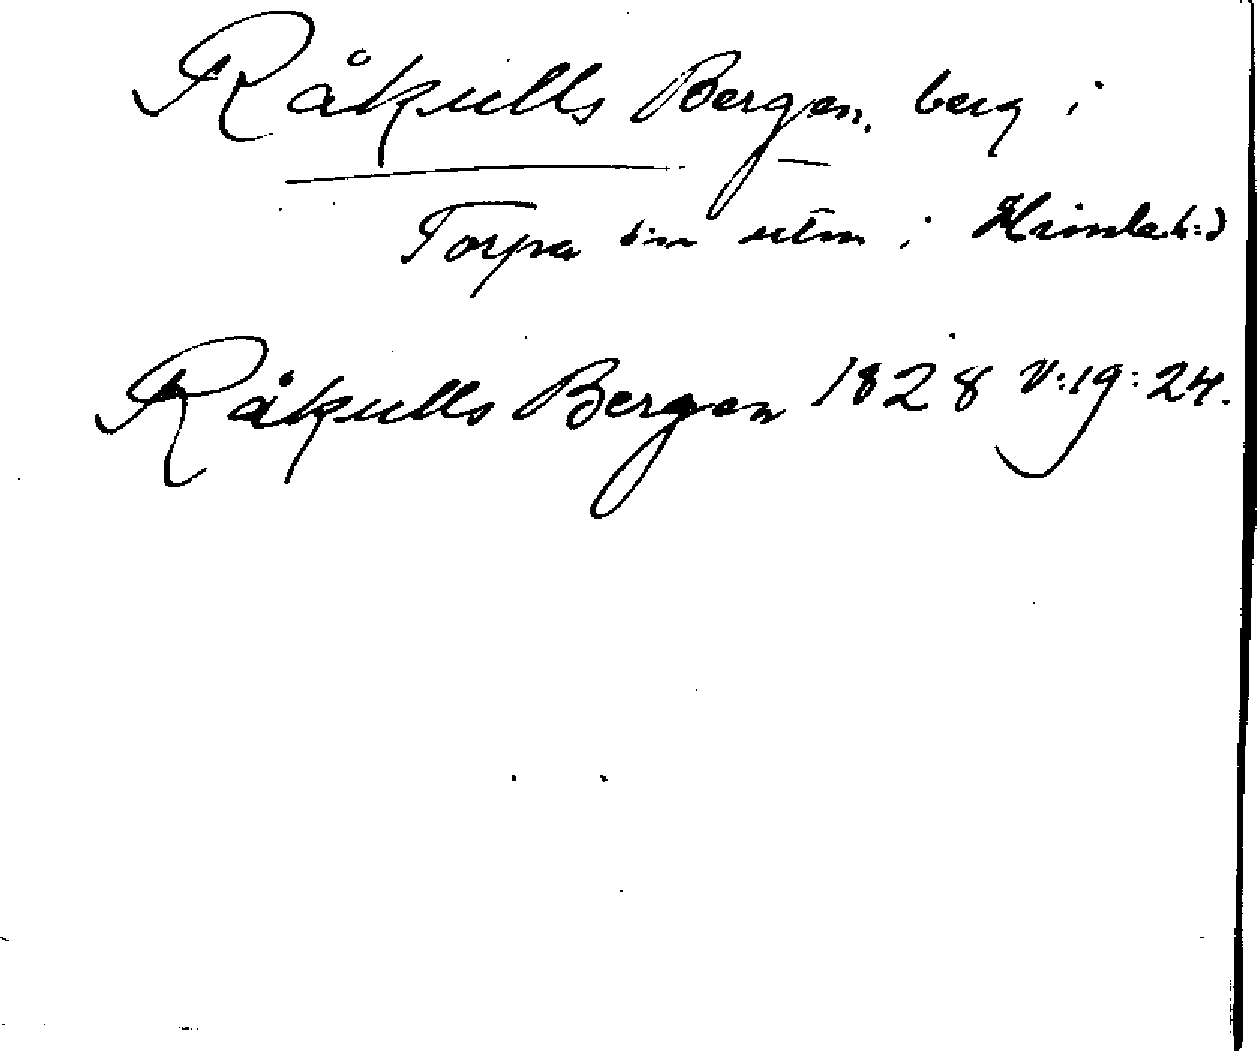 Råkulls Bergen, berg i
Torpa sn utm i Himle h:d
Råkulls Bergen 1828 V:19:24.